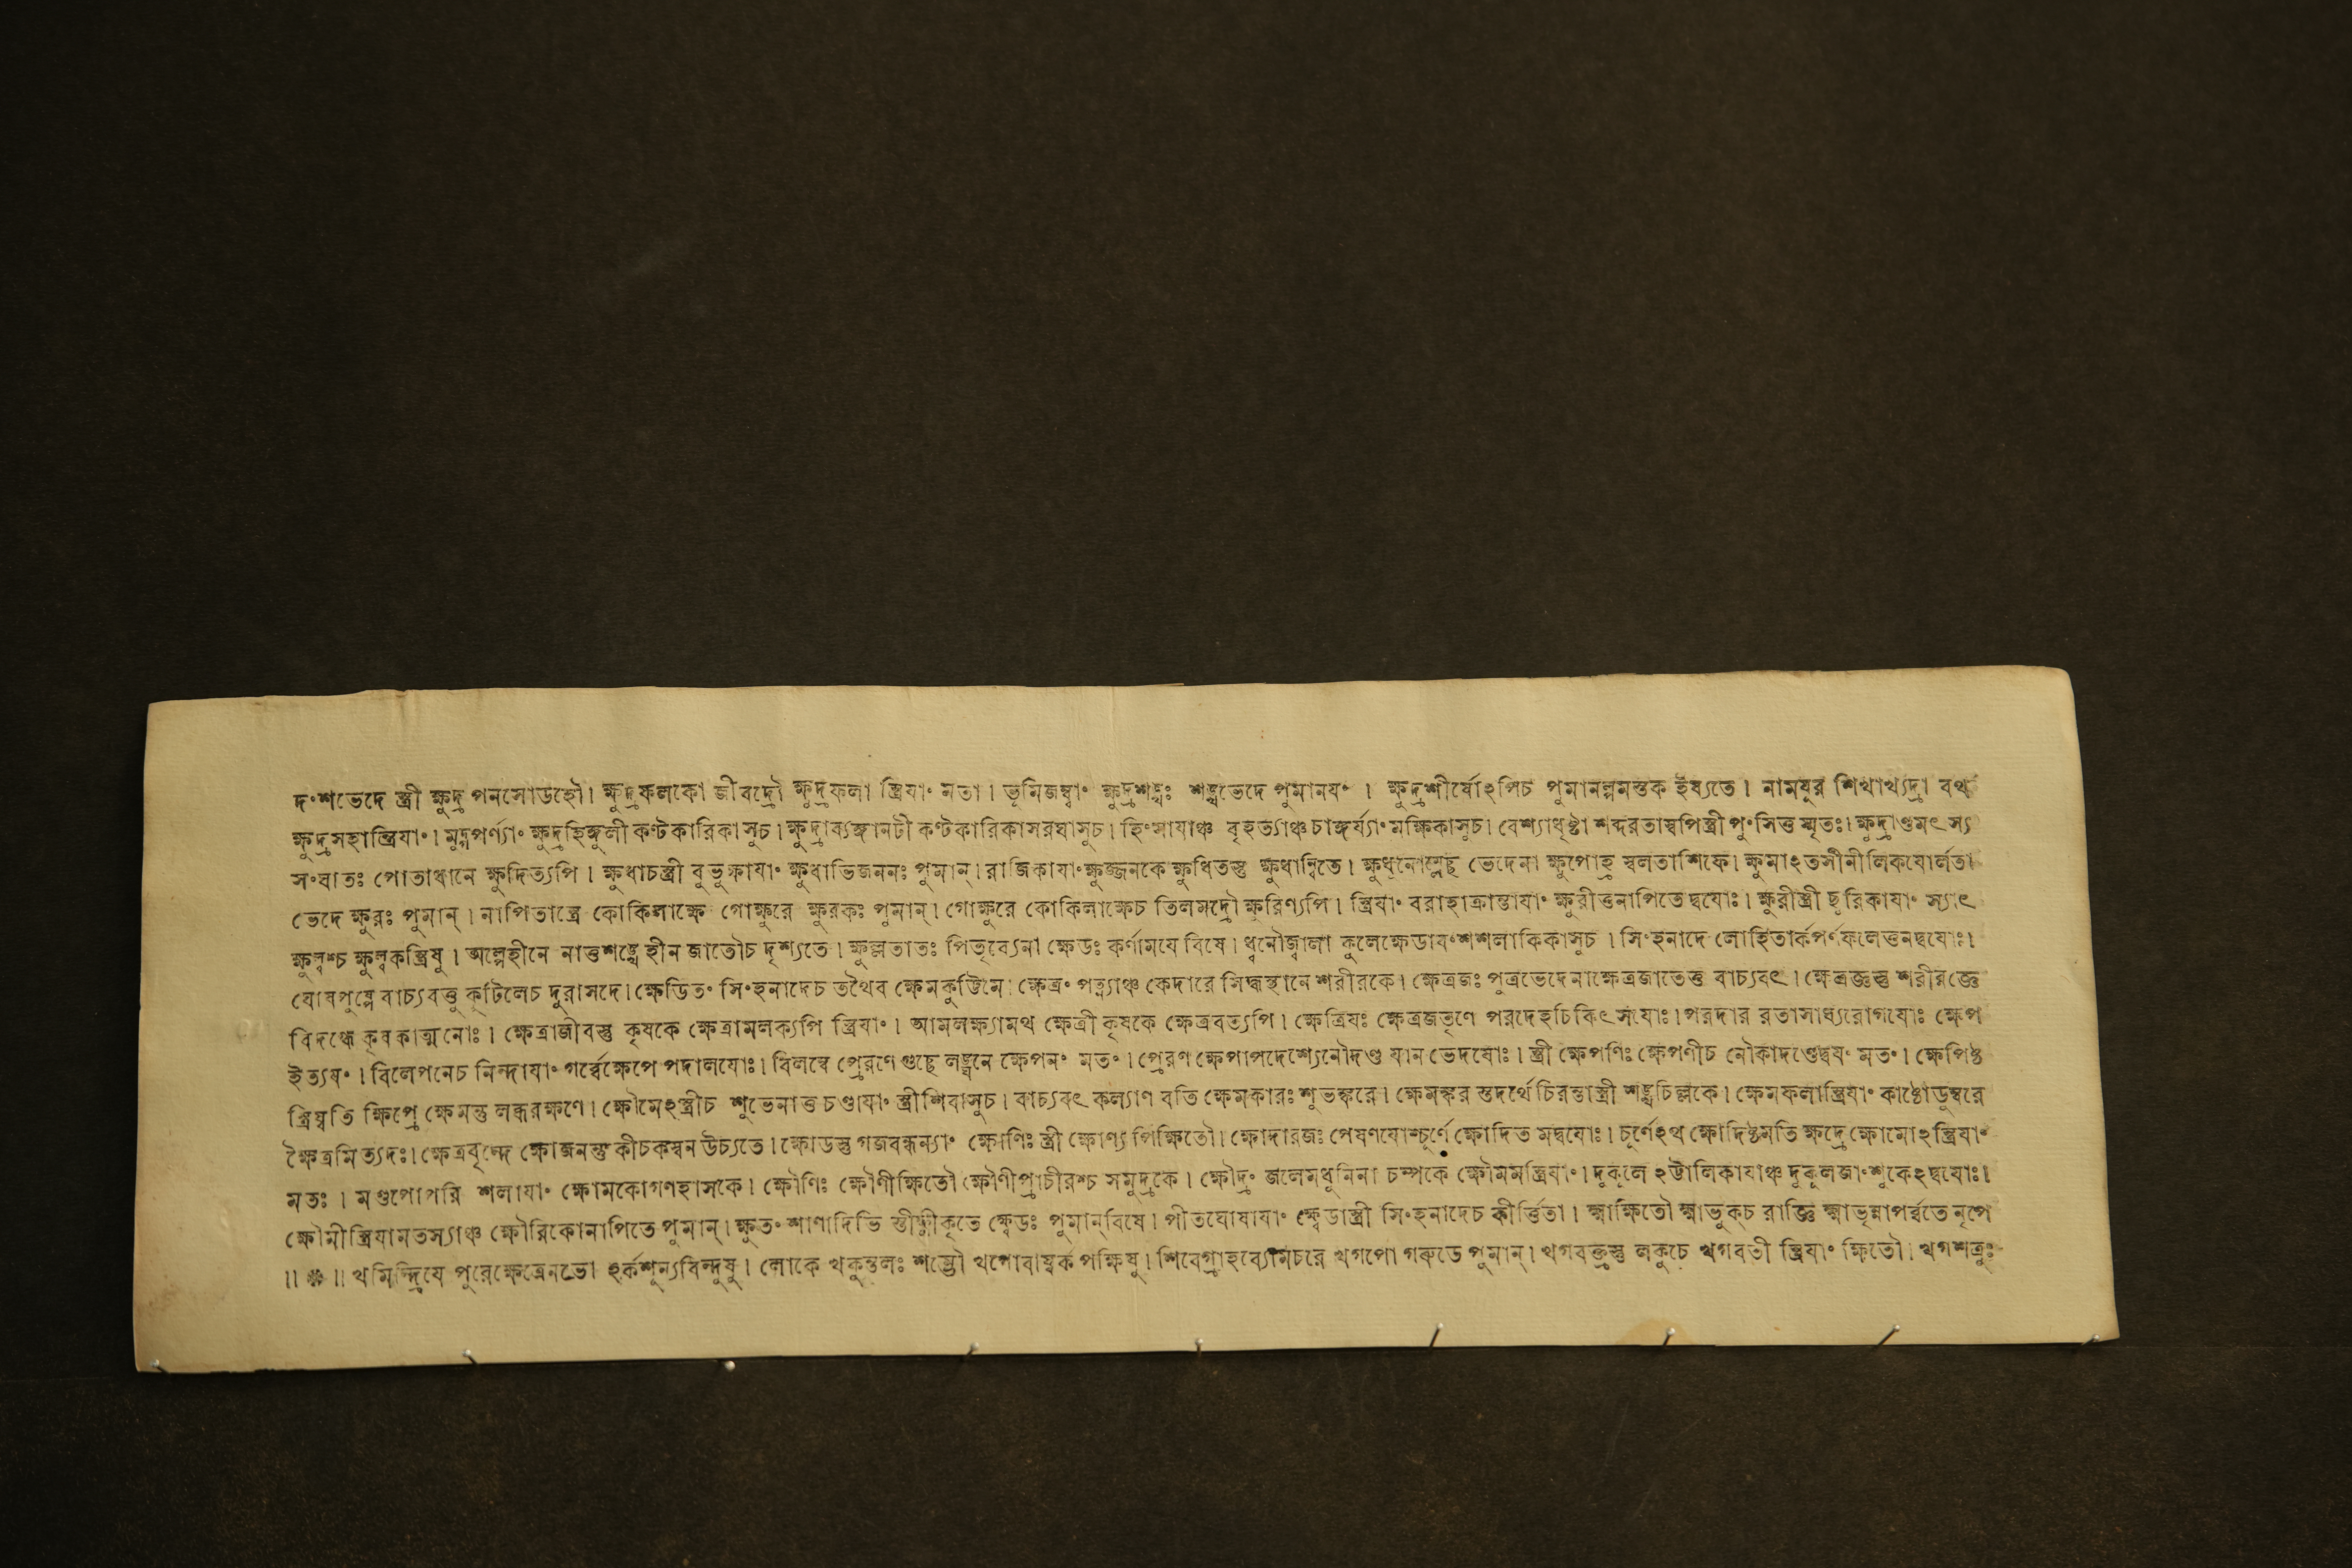 দংশভেদে স্ত্রী ক্ষুদ্র পনসোডহৌ। ক্ষুদ্রফলকো জীবদ্রৌ ক্ষুদ্রফলা স্ত্রিযাং মতা। ভূমিজম্বাং ক্ষুদ্রশঙ্খঃ শঙ্খভেদে পুমানযং । ক্ষুদ্রশীর্ষোঽপিচ পুমানল্পমস্তক ইষ্যতে। নামযুর শিখাখ্যদ্রা বথ
ক্ষুদ্রসহাস্ত্রিযাং। মুদ্গপর্ণ্যাং ক্ষুদ্রহিঙ্গুলী কণ্টকারিকাসুচ। ক্ষুদ্রাব্যঙ্গানটী কণ্টকারিকাসরঘাসুচ। হিংস্রাযাঞ্চ বৃহত্যাঞ্চচাঙ্গর্য্যাং মক্ষিকাসুচ। বেশ্যাধৃষ্টা শব্দরতাস্বপিস্ত্রী পুংসিত্ত স্মৃতঃ। ক্ষুদ্রাণ্ডমৎস্য
সংঘাতঃ পোতাধানে ক্ষুদিত্যপি । ক্ষুধাচস্ত্রী বুভুক্ষাযাং ক্ষুধাভিজননঃ পুমান্। রাজিকাযাং ক্ষুজ্জনকে ক্ষুধিতস্তু ক্ষুধান্বিতে। ক্ষুধনোম্লেছ ভেদেনা ক্ষুপোহ্র স্বলতাশিফে। ক্ষুমাঽতসীনীলিকযোর্লতা
ভেদে ক্ষুরঃ পুমান্ । নাপিতাস্ত্রে কোকিলাক্ষে গোক্ষুরে ক্ষুরকঃ পুমান্। গোক্ষুরে কোকিলাক্ষেচ তিলমদ্রৌ ক্ষুরিণ্যপি। স্ত্রিযাং বরাহাক্রান্তাযাং ক্ষুরীত্তনাপিতে দ্বযোঃ। ক্ষুরীস্ত্রী ছুরিকাযাং স্যাৎ
ক্ষুল্বশ্চ ক্ষুল্বকস্ত্রিষু । অল্পেহীনে নাত্তশঙ্খে হীন জাতৌচ দৃশ্যতে। ক্ষুল্লতাতঃ পিতৃব্যেনা ক্ষেডঃ কর্ণামযে বিষে। ধ্বনৌজ্বালা কুলেক্ষেডাবংশশলাকিকাসুচ । সিংহনাদে লোহিতার্কপর্ণফলেত্তনদ্বযোঃ।
ঘোষপুষ্পে বাচ্যবত্তু কুটিলেচ দুরাসদে। ক্ষেডিতং সিংহনাদেচ তথৈব ক্ষেমকুট্টিমে। ক্ষেত্রং পত্ন্যাঞ্চ কেদারে সিদ্ধস্থানে শরীরকে। ক্ষেত্রজঃ পুত্রভেদেনাক্ষেত্রজাতেত্ত বাচ্যবৎ। ক্ষেত্রজ্ঞস্তু শরীরজ্ঞে
বিদগ্ধে কৃষকাত্মনোঃ। ক্ষেত্রাজীবস্তু কৃষকে ক্ষেত্রামলক্যপি স্ত্রিযাং। আমলক্ষ্যামথ ক্ষেত্রী কৃষকে ক্ষেত্রবত্যপি। ক্ষেত্রিযঃ ক্ষেত্রজতৃণে পরদেহচিকিৎসযোঃ। পরদার রতাসাধ্যরোগযোঃ ক্ষেপ
ইত্যযং। বিলেপনেচ নিন্দাযাং গর্ব্বেক্ষেপে পদালযোঃ। বিলম্বে প্রেরণে গুছে লঙ্ঘনে ক্ষেপনং মতং। প্রেরণ ক্ষেপাপদেশ্যেনৌদণ্ড যান ভেদযোঃ। স্ত্রী ক্ষেপণিঃ ক্ষেপণীচ নৌকাদণ্ডেদ্বযং মতং। ক্ষেপিষ্ঠ
স্ত্রিষ্বতি ক্ষিপ্রে ক্ষেমস্তু লব্ধরক্ষণে। ক্ষৌমেঽস্ত্রীচ শুভেনাত্ত চণ্ডাযাং স্ত্রীশিবাসুচ। বাচ্যবৎ কল্যাণ বতি ক্ষেমকারঃ শুভঙ্করে। ক্ষেমঙ্কর স্তদর্থে চিরন্তাস্ত্রী শঙ্খচিল্লকে। ক্ষেমফলাস্ত্রিযাং কাষ্ঠোডুম্বরে
ক্ষৈত্রমিত্যদঃ। ক্ষেত্রবৃন্দে ক্ষোজনস্তু কীচকস্বন উচ্যতে। ক্ষোডস্তু গজবন্ধন্যাং ক্ষোণিঃ স্ত্রী ক্ষোণ্য পিক্ষিতৌ। ক্ষোদারজঃ পেষণযোশ্চূর্ণে ক্ষোদিত মদ্বযোঃ। চূর্ণেঽথ ক্ষোদিষ্ঠমতি ক্ষদ্রে ক্ষোমোঽস্ত্রিযাং
মতঃ । মণ্ডপোপরি শলাযাং ক্ষোমকোগণহাসকে। ক্ষৌণিঃ ক্ষৌণীক্ষিতৌ ক্ষৌণীপ্রাচীরশ্চ সমুদ্রকে। ক্ষৌদ্রং জলেমধুনিনা চম্পকে ক্ষৌমমস্ত্রিযাং। দুকূলে ঽট্টালিকাযাঞ্চ দুকূলজাংশুকেঽদ্বযোঃ।
ক্ষৌমীস্ত্রিযামতস্যাঞ্চ ক্ষৌরিকোনাপিতে পুমান্। ক্ষুতং শাণাদিভি স্তীক্ষ্ণীকৃতে ক্ষ্বেডঃ পুমান্‌বিষে। পীতঘোষাযাং ক্ষ্বেডাস্ত্রী সিংহনাদেচ কীর্ত্তিতা। ক্ষ্মাক্ষিতৌ ক্ষ্মাভুক্‌চ রাজ্ঞি ক্ষ্মাভৃন্নাপর্ব্বতে নৃপে
॥ ❋ ॥ খমিন্দ্রিযে পুরেক্ষেত্রেনভো ঽর্কশূন্যবিন্দুষু। লোকে খকুন্তলঃ শম্ভৌ খগোবাযর্ক পক্ষিষু। শিবেগ্রাহব্যোমচরে খগপো গরুডে পুমান্। খগবক্ত্রস্তু লকুচে খগবতী স্ত্রিযাং ক্ষিতৌ। খগশত্রুঃ